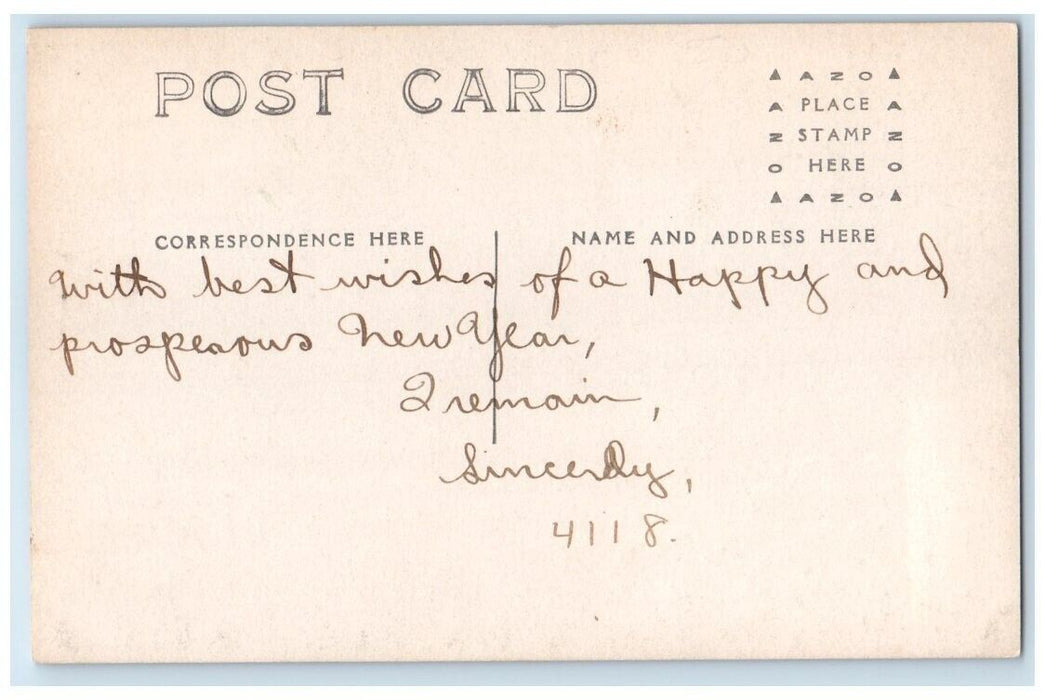 POST CARD
▲ A Z O ▲
A PLACE A
Z STAMP Z
O HERE O
▲ A Z O ▲
CORRESPONDENCE HERE
NAME AND ADDRESS HERE
With best wishes of a Happy and
prosperous New Year,
I remain,
Sincerely,
4118.